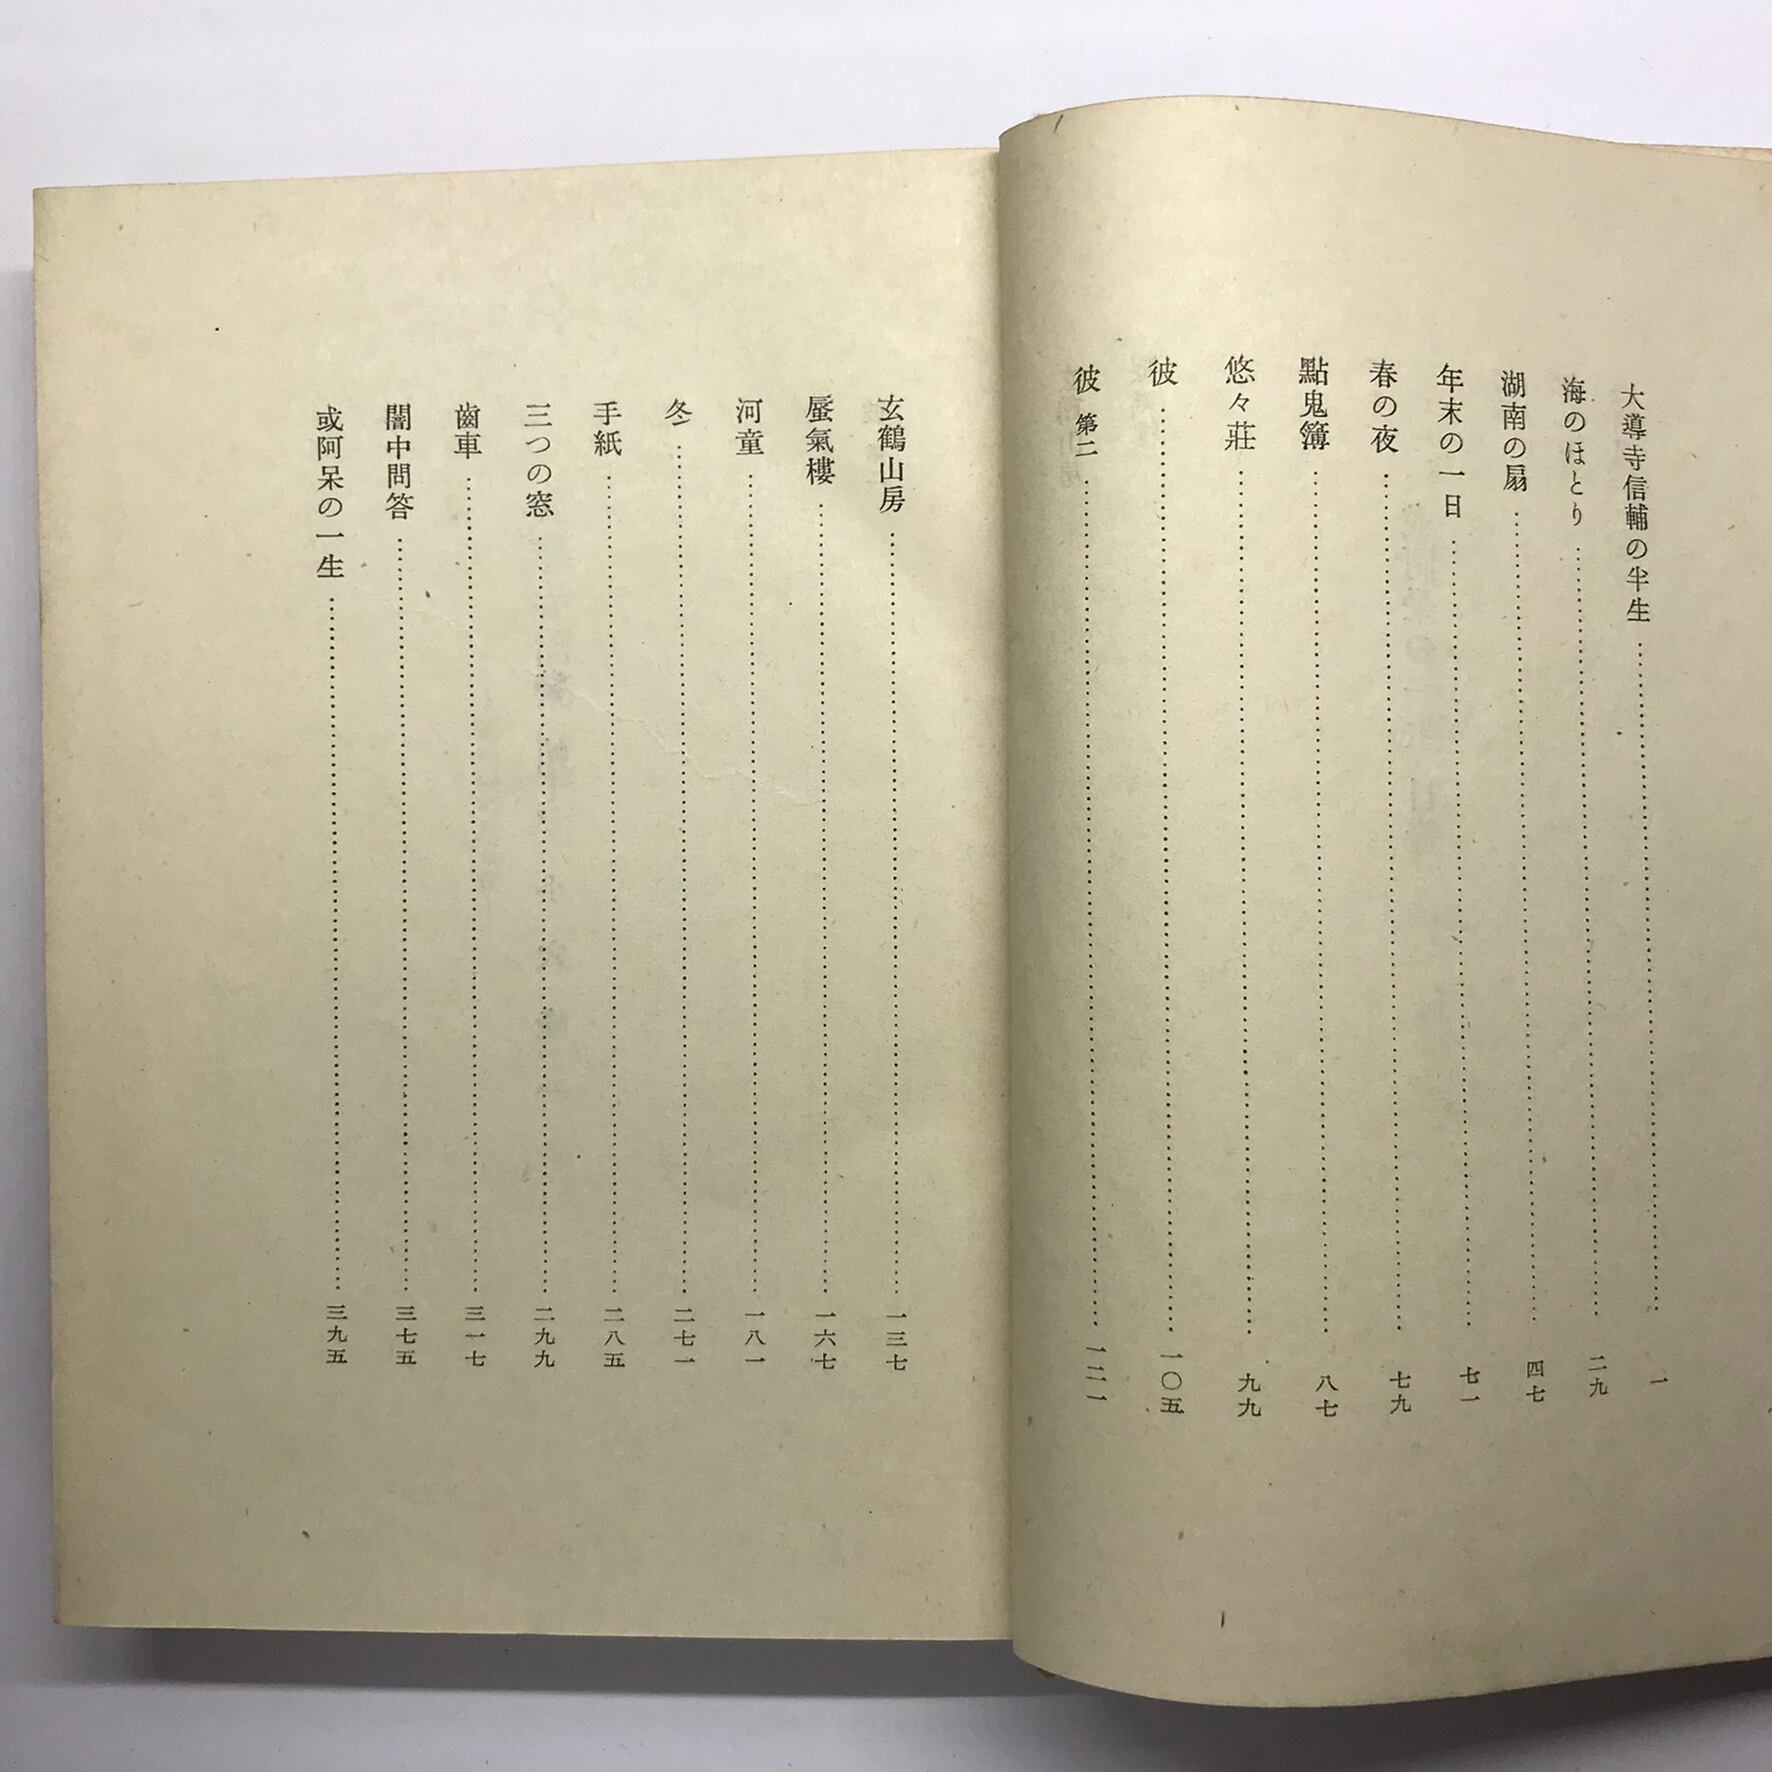 大導寺信輔の半生……一
海のほとり……二九
湖南の扇……四七
年末の一日……七一
春の夜……七九
點鬼簿……八七
悠々莊……九九
彼……一〇五
彼 第二……一二一
玄鶴山房……一三七
蜃氣樓……一六七
河童……一八一
冬……二七一
手紙……二八五
三つの窓……二九九
齒車……三一七
闇中問答……三七五
或阿呆の一生……三九五